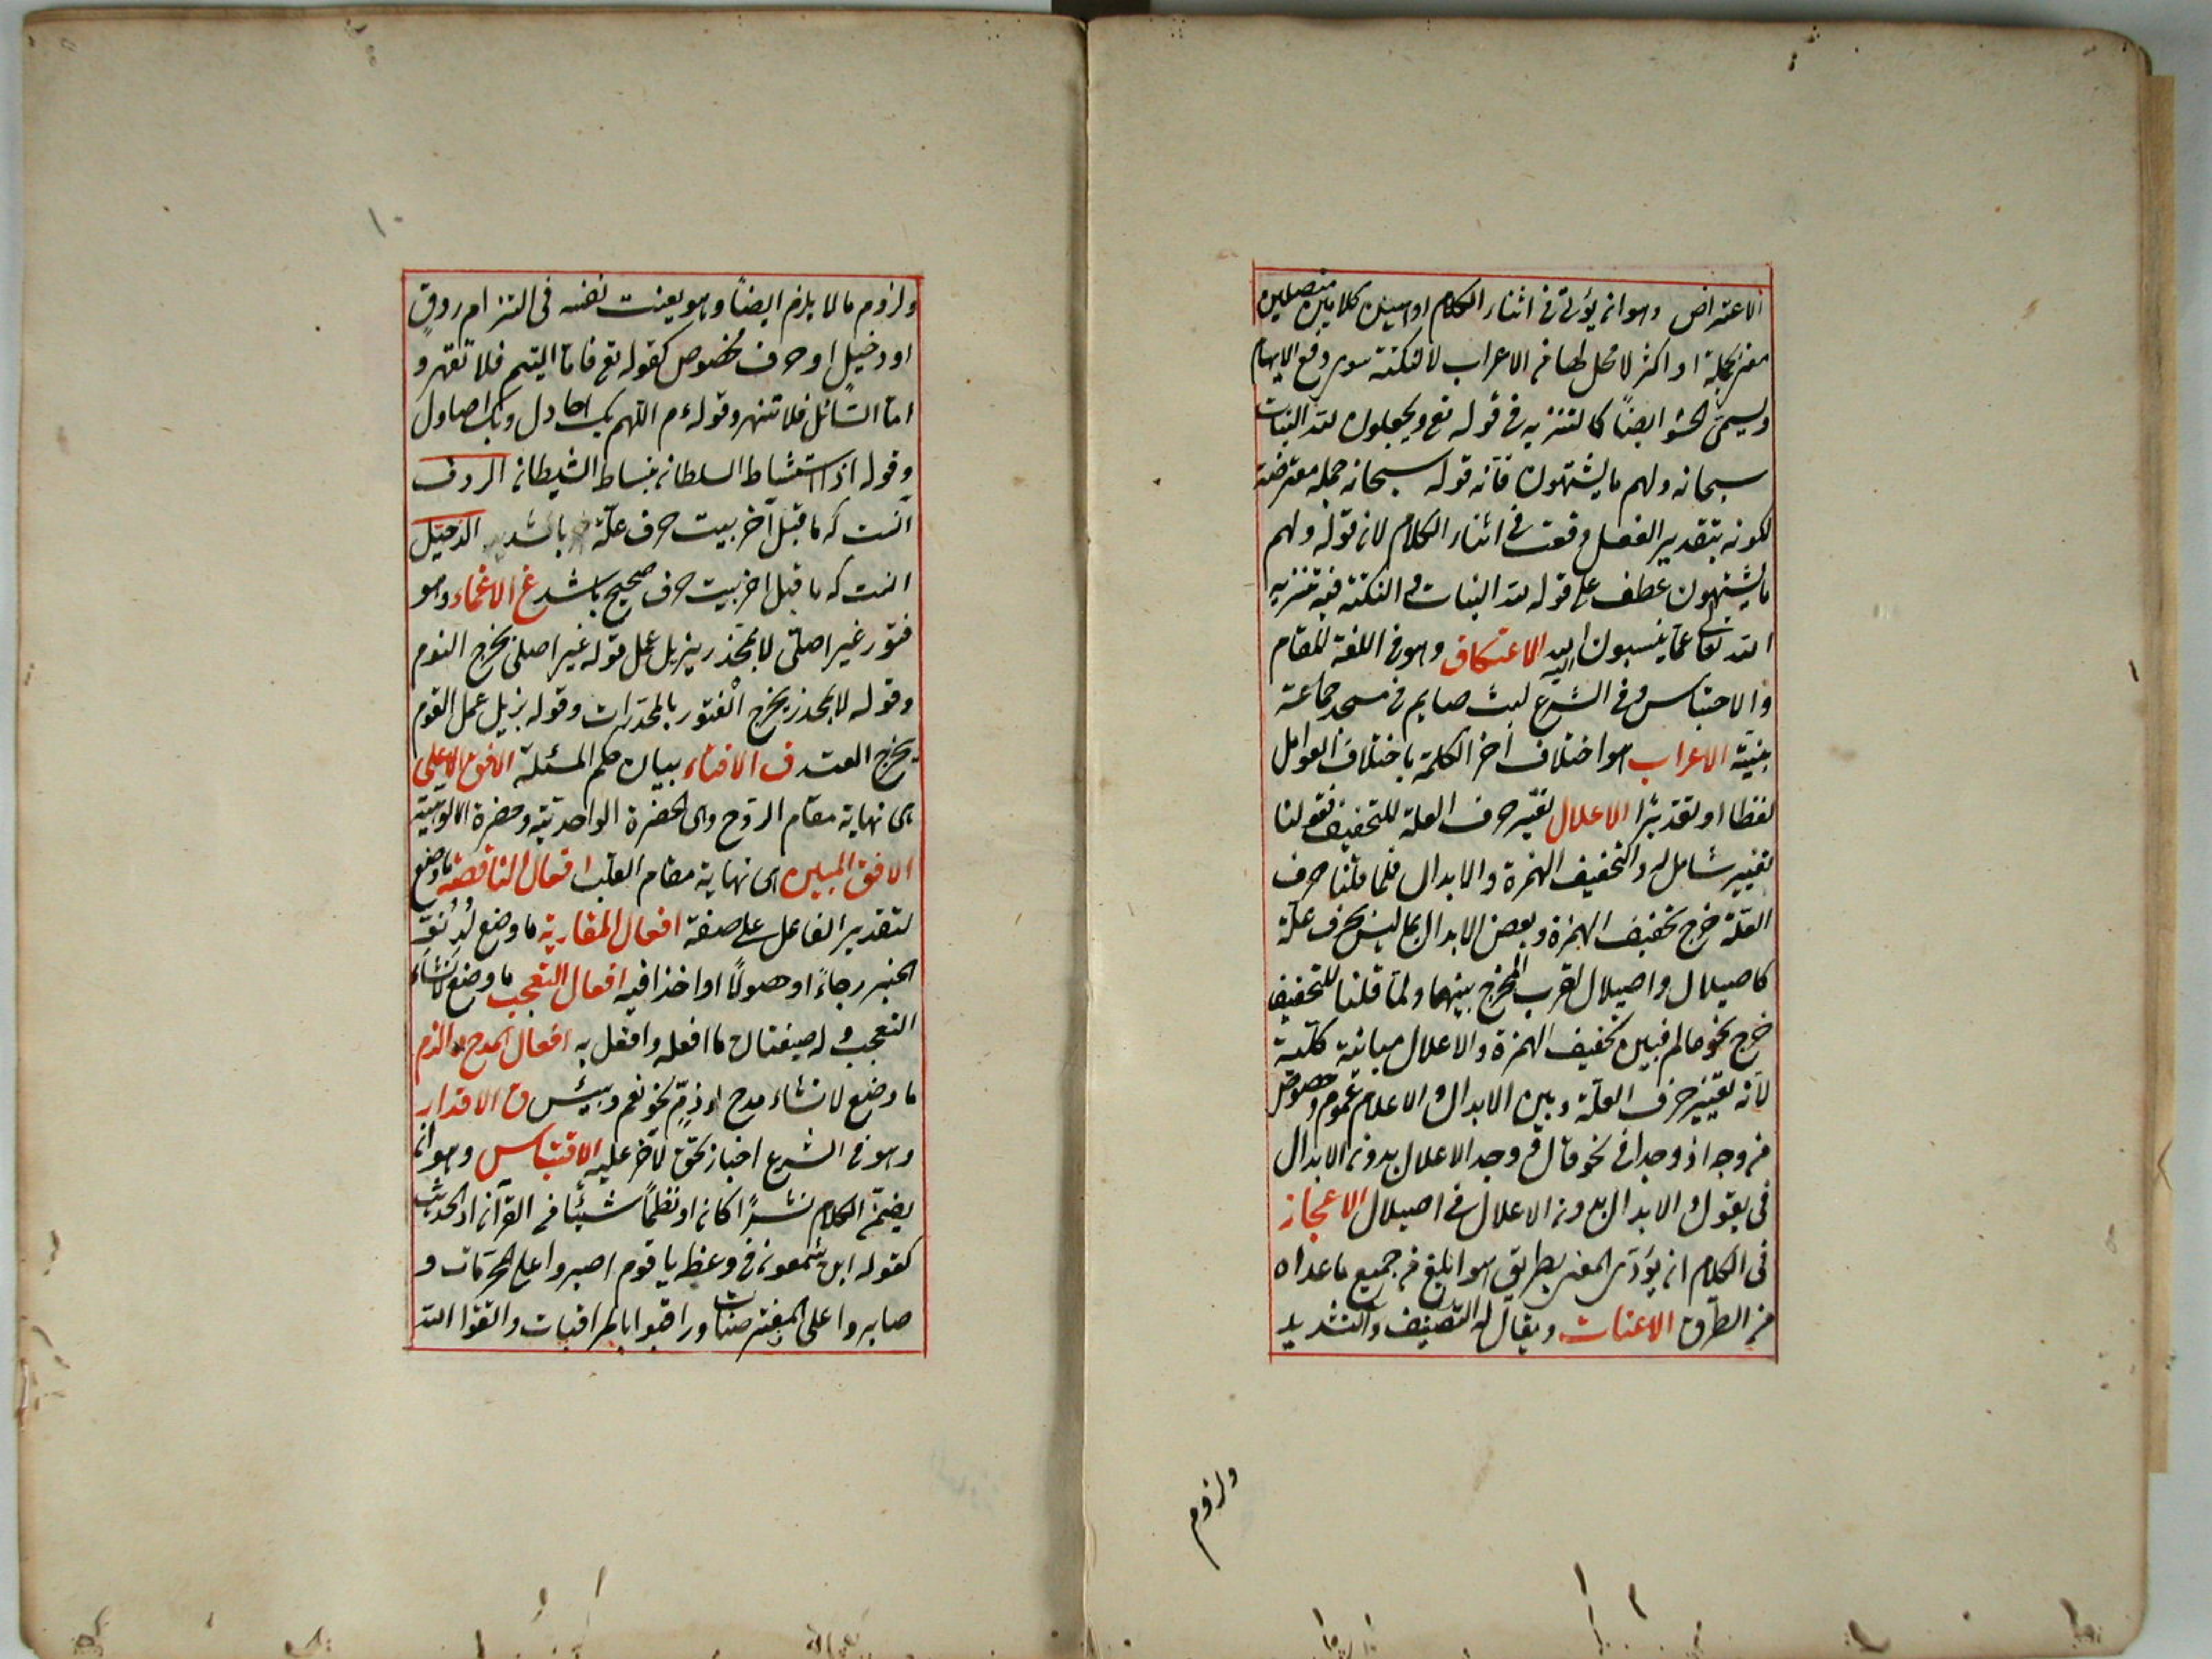 الاعتراض وهو ان يؤتى فى اثناء الكلام او بين كلامين متصلين
معنى بجملة او اكثر لا محل لها من الاعراب لا لنكتة سوى رفع الابهام
ويسمى الحشو ايضاً كالتنزيه فى قوله تع ويجعلون لله البنات
سبحانه ولهم ما يشتهون فانه قوله سبحانه جملة معترضة
لكونه بتقدير الفعل وقعت فى اثناء الكلام لان قوله ولهم
ما يشتهون عطف على قوله لله البنات والنكتة فيه تنزيه
الله تعالى عما ينسبون اليه الاعتكاف وهو فى اللغة المقام
والاحتباس وفى الشرع لبث صايم فى مسجد جماعة
بنية الاعراب هو اختلاف آخر الكلمة باختلاف العوامل
لفظا او تقديرًا الاعلال تغير حرف العلة للتخفيف فقولنا
تغيير شامل له ولتخفيف الهمزة والابدال فلما قلنا حرف
العلة خرج تخفيف الهمزة وبعض الابدال مما ليس بحرف علة
كاصيلال واصيلال لقرب المخرج بينهما ولما قلنا للتخفيف
خرج نحو عالم فبين تخفيف الهمزة والاعلال مباينة كلية
لانه تغيير حرف العلة وبين الابدال والاعلام عموم وخصوص
من وجه اذ وجدا فى نحو قال ووجد الاعلال بدون الابدال
فى يقول والابدال بدون الاعلال فى اصيلال الاعجاز
فى الكلام ان يؤدى المعنى بطريق هو ابلغ من جميع ما عداه
من الطرق الاعنات ويقال له التضيف والتشديد
ولزوم
١٠
ولزوم ما لا يلزم ايضاً وهو يعنت نفسه فى التزام ردف
او دخيل او حرف مخصوص كقوله تع فاما اليتيم فلا تقهر و
اما السائل فلا تنهر وقوله ءم اللهم بك احاول وبك اصاول
وقوله اذا استشاط السلطان بنساط الشيطان الردف
آنست كه ما قبل آخر بيت حرف علة باشد الدخيل
انست كه ما قبل اخر بيت حرف صحيح باشد غ الاغماء وهو
فتور غير اصلى لا بمخدر يزيل عمل قوله غير اصلى يخرج النوم
وقوله لا بمخدر يخرج الفتور بالمخدرات وقوله يزيل عمل القوم
يخرج العته ف الافتاء بيان حكم المسئلة الافق الاعلى
هى نهاية مقام الروح وهى الحضرة الواحدية وحضرة الالوهية
الافق المبين هى نهاية مقام القلب افعال الناقصة ما وضع
لتقدير الفاعل على صفة افعال المقاربة ما وضع لدنو
الخبر رجاءً او حصولًا او اخذا فيه افعال التعجب ما وضع لانشاء
التعجب وله صيغتان ما افعله وافعل به افعال المدح والذم
ما وضع لانشاء مدح او ذم نحو نعم وبئس ق الاقرار
وهو فى الشرع اخبار بحق لآخر عليه الاقتباس وهو ان
يضمّن الكلام نثرًا كان او نظمًا شيئا من القرآن او الحديث
كقوله ابن شمعون فى وعظه يا قوم اصبروا على المحرمات و
صابروا على المفترضات وراقبوا بالمراقبات واتقوا الله